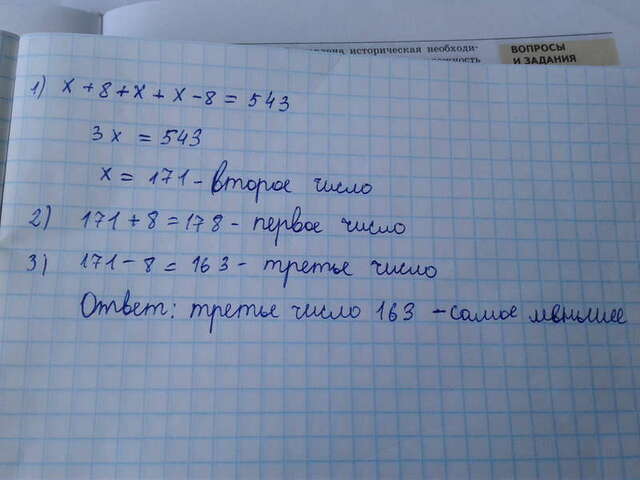 1) x + 8 + x + x - 8 = 543
3x = 543
x = 171 - второе число
2) 171 + 8 = 178 - первое число
3) 171 - 8 = 163 - третье число
Ответ: третье число 163 - самое меньшее
историческая необходи-
ВОПРОСЫ
И ЗАДАНИЯ